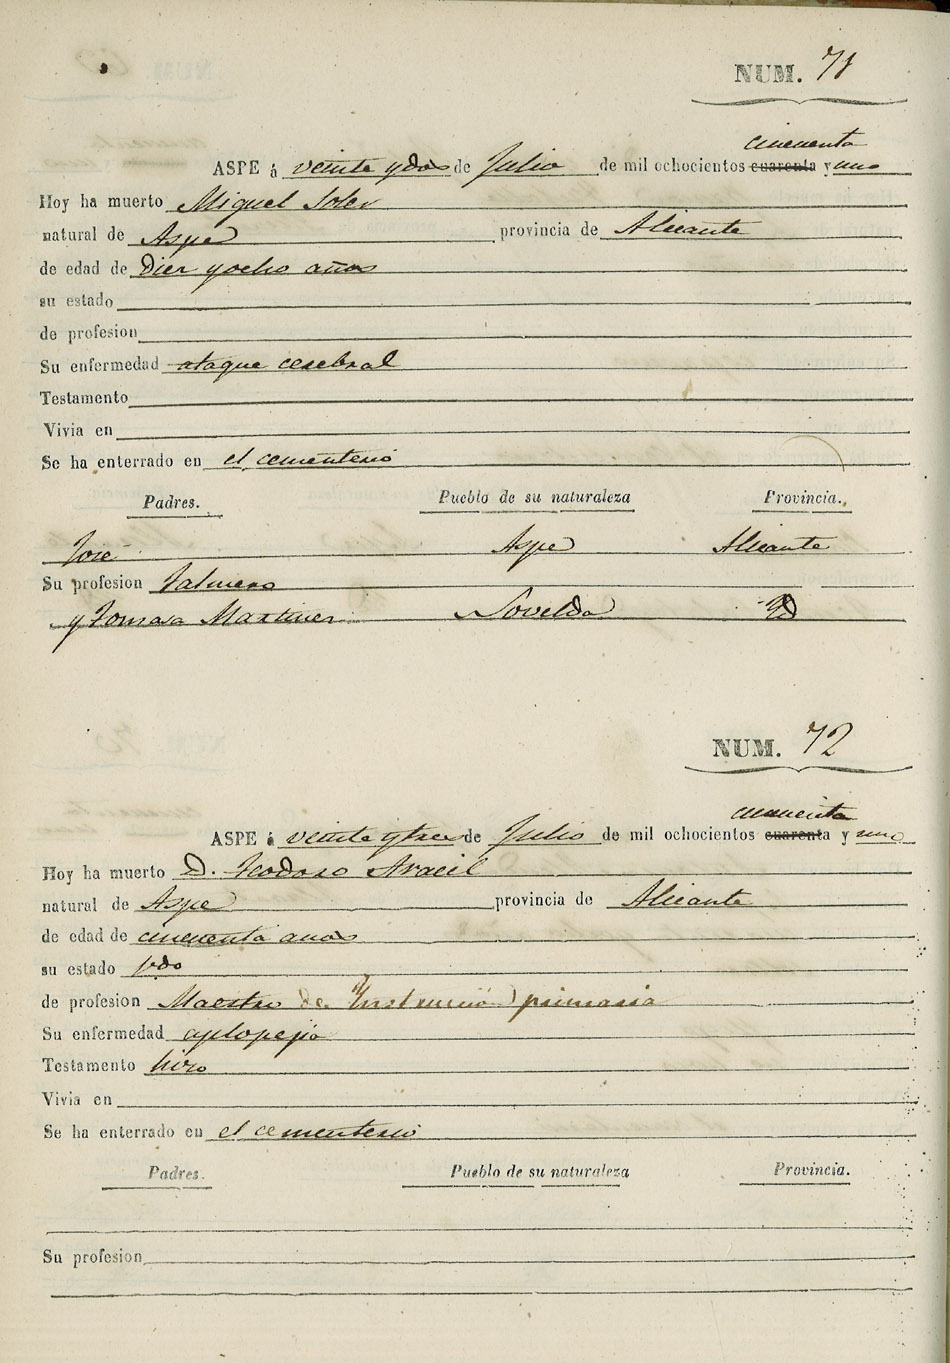 NUM. 71
cincuenta
ASPE á veinte y dos de Julio de mil ochocientos cuarenta y uno
Hoy ha muerto Miguel Soler
natural de Aspe provincia de Alicante
de edad de Diez y ocho años
su estado
de profesion
Su enfermedad ataque cerebral
Testamento
Vivia en
Se ha enterrado en el cementerio
Padres. Pueblo de su naturaleza Provincia.
José Aspe Alicante
Su profesion
y Tomasa Martinez Novelda Yd
NUM. 72
cincuenta
ASPE á veinte y tres de Julio de mil ochocientos cuarenta y uno
Hoy ha muerto D. Teodoso Aracil
natural de Aspe provincia de Alicante
de edad de cincuenta años
su estado
de profesion Maestro de Instrucció primaria
Su enfermedad aplopejia
Testamento hizo
Vivia en
Se ha enterrado en el cementerio
Padres. Pueblo de su naturaleza Provincia.
Su profesion